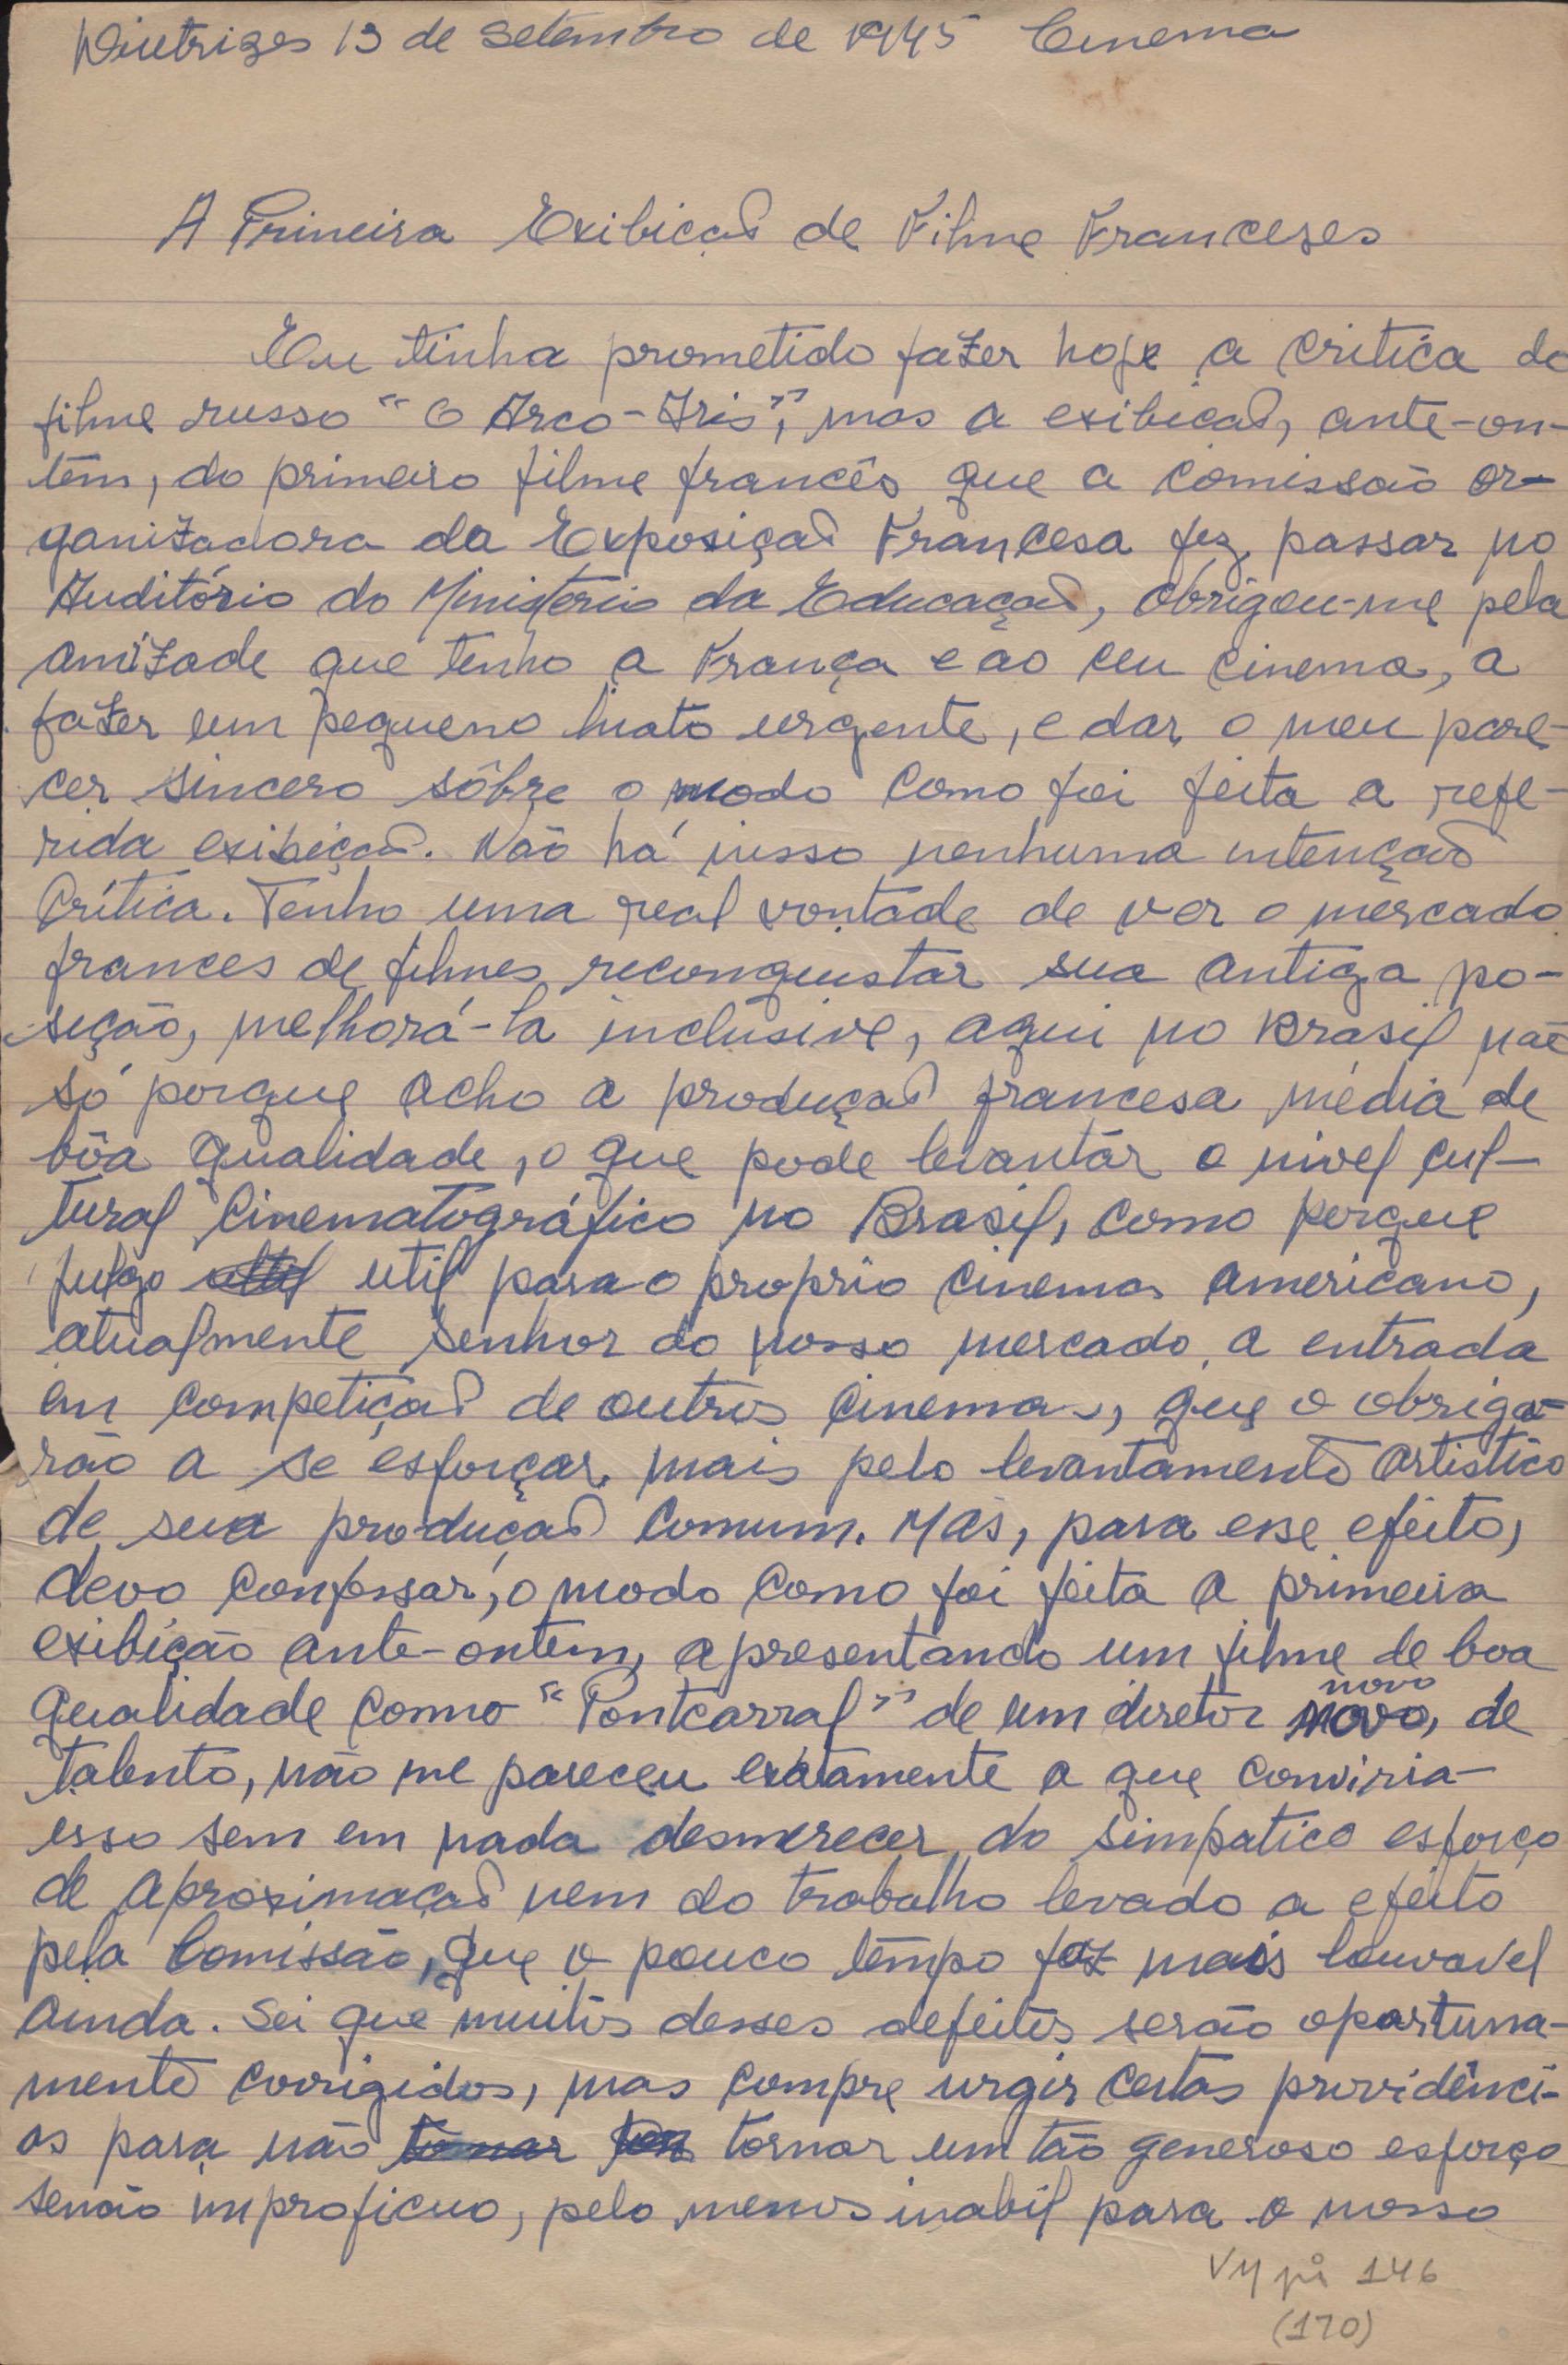 Diretrizes 13 de Setembro de 1945 Cinema
A Primeira Exibição de Filme Franceses
Eu tinha prometido fazer hoje a critica do
filme russo "O Arco-Iris", mas a exibição, ante-on-
têm, do primeiro filme francês que a comissão or-
ganizadora da Exposição Francesa fez passar no
Auditório do Ministério da Educação, obrigou-me pela
amizade que tenho a França e ao ceu cinema, a
fazer um pequeno hiato urgente, e dar o meu pare-
cer sincero sôbre o modo como foi feita a refe-
rida exibição. Não há nisso nenhuma intenção
Crítica. Tenho uma real vontade de ver o mercado
frances de filmes reconquistar sua antiga po-
sição, melhorá-la inclusive, aqui no Brasil não
só porque acho a produção francesa média de
bôa qualidade, o que pode levantar o nivel cul-
tural cinematográfico no Brasil, como porque
julgo util para o proprio cinema americano,
atualmente senhor do nosso mercado, a entrada
em competição de outros cinemas, que o obriga-
rão a se esforçar mais pelo levantamento artistico
de sua produção comum. Mas, para esse efeito,
devo confessar, o modo como foi feita a primeira
exibição ante-ontem, apresentando um filme de boa
qualidade como "Pontcarral" de um diretor novo novo, de
talento, não me pareceu exatamente a que conviria-
isso sem em nada desmerecer do simpatico esforço
de aproximação nem do trabalho levado a efeito
pela Comissão, que o pouco têmpo faz mais louvavel
ainda. Sei que muitos desses defeitos serão oportuna-
mente corrigidos, mas compre urgir certas providênci-
as para não tornar um tão generoso esforço
senão improficuo, pelo menos inabil para o nosso
VM pi 146
(170)